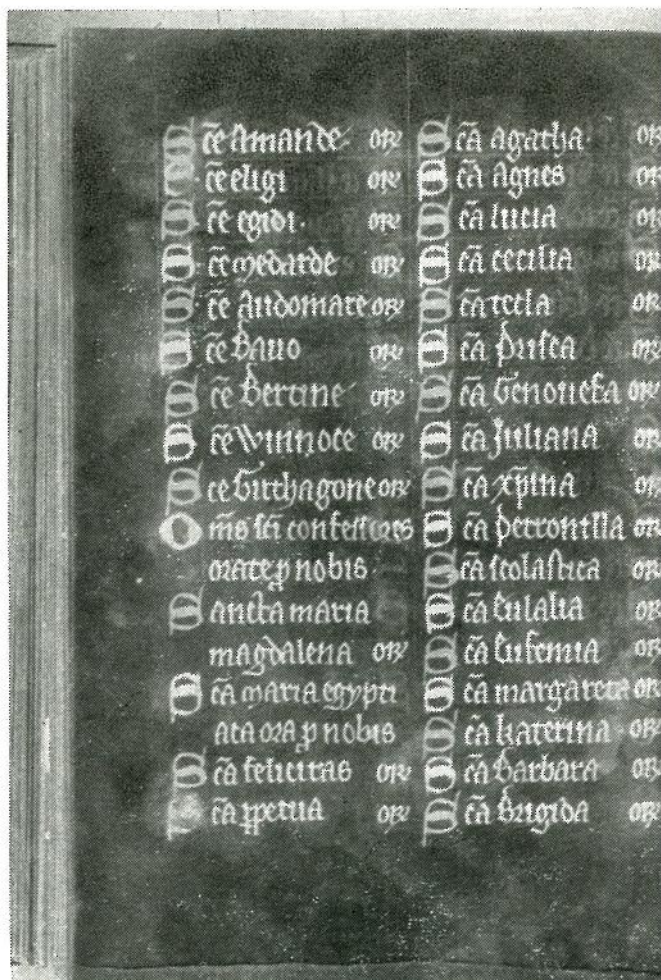 Sc̄e Amande or
Sc̄e eligi or
Sc̄e egidi or
Sc̄e medarde or
Sc̄e Audomare or
Sc̄e Bauo or
Sc̄e Bertine or
Sc̄e Winnoce or
Sce Guthagone or
Om̄s sc̄i confessores
orate ꝓ nobis
Sancta maria
magdalena or
Sc̄a maria egypti
aca ora ꝓ nobis
Sc̄a felicitas or
Sc̄a ꝑpetua or
Sc̄a agatha or
Sc̄a Agnes or
Sc̄a lucia or
Sc̄a cecilia or
Sc̄a tecla or
Sc̄a prisca or
Sc̄a Genouefa or
Sc̄a Juliana or
Sc̄a xp̄ina or
Sc̄a petronilla or
Sc̄a scolastica or
Sc̄a Eulalia or
Sc̄a Eufemia or
Sc̄a margareta or
Sc̄a katerina or
Sc̄a Barbara or
Sc̄a Brigida or